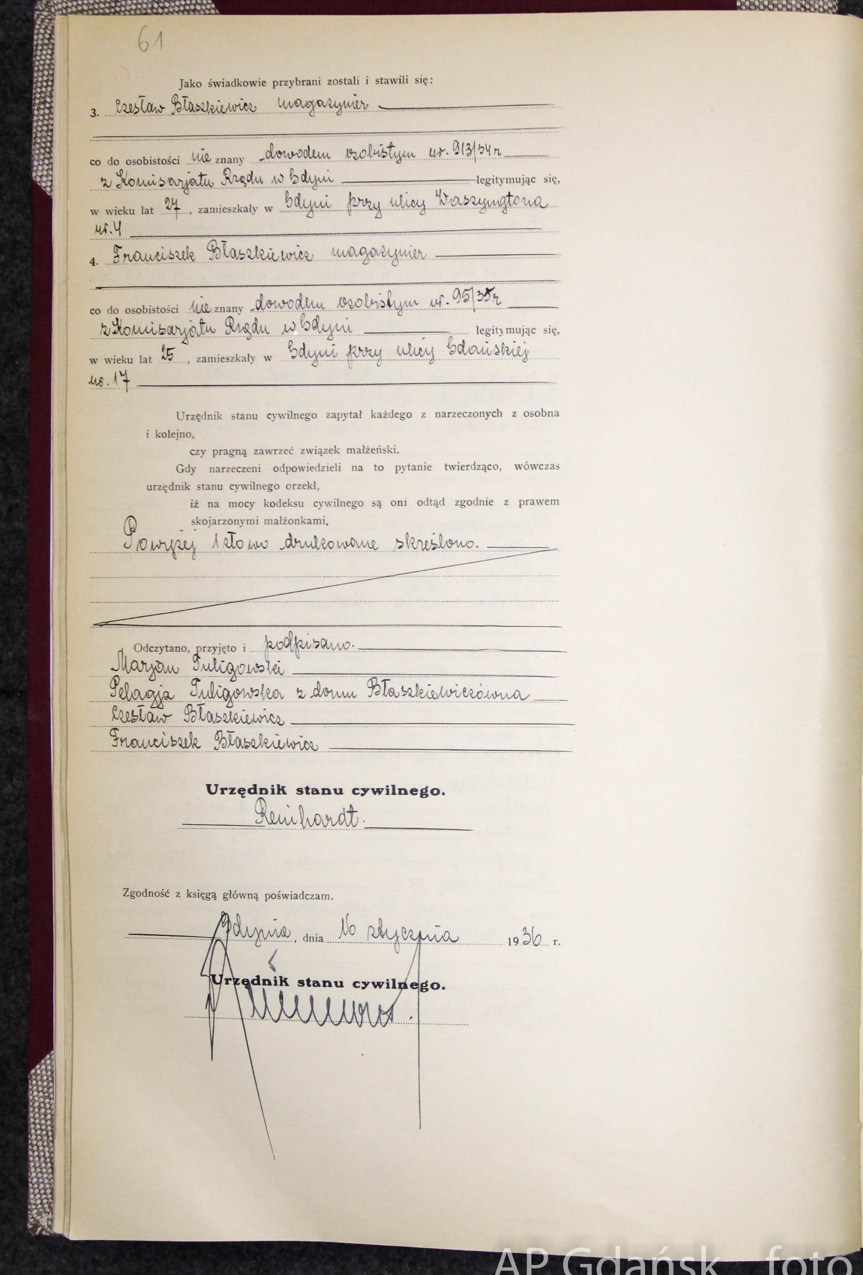 61
Jako świadkowie przybrani zostali i stawili się:
3. Czesław Błaszkiewicz magazynier
co do osobistości nie znany dowodem osobistym nr. 913/34 r
z Komisarjatu Rządu w Gdyni legitymując się,
w wieku lat 27, zamieszkały w Gdyni przy ulicy Waszyngtona
nr. 4
4. Franciszek Błaszkiewicz magazynier
co do osobistości nie znany dowodem osobistym nr. 95/35 r
z Komisarjatu Rządu w Gdyni legitymując się,
w wieku lat 25, zamieszkały w Gdyni przy ulicy Gdańskiej
no. 17
Urzędnik stanu cywilnego zapytał każdego z narzeczonych z osobna
i kolejno,
czy pragną zawrzeć związek małżeński.
Gdy narzeczeni odpowiedzieli na to pytanie twierdząco, wówczas
urzędnik stanu cywilnego orzekł,
iż na mocy kodeksu cywilnego są oni odtąd zgodnie z prawem
skojarzonymi małżonkami.
Powyżej 1 słowo drukowane skreślono.
Odczytano, przyjęto i podpisano.
Marjan Tuligowski
Pelagja Tuligowska z domu Błaszkiewiczówna
Czesław Błaszkiewicz
Franciszek Błaszkiewicz
Urzędnik stanu cywilnego.
Reinhardt.
Zgodność z księgą główną poświadczam.
Gdynia, dnia 16 stycznia 1936 r.
Urzędnik stanu cywilnego.
AP Gdańsk foto